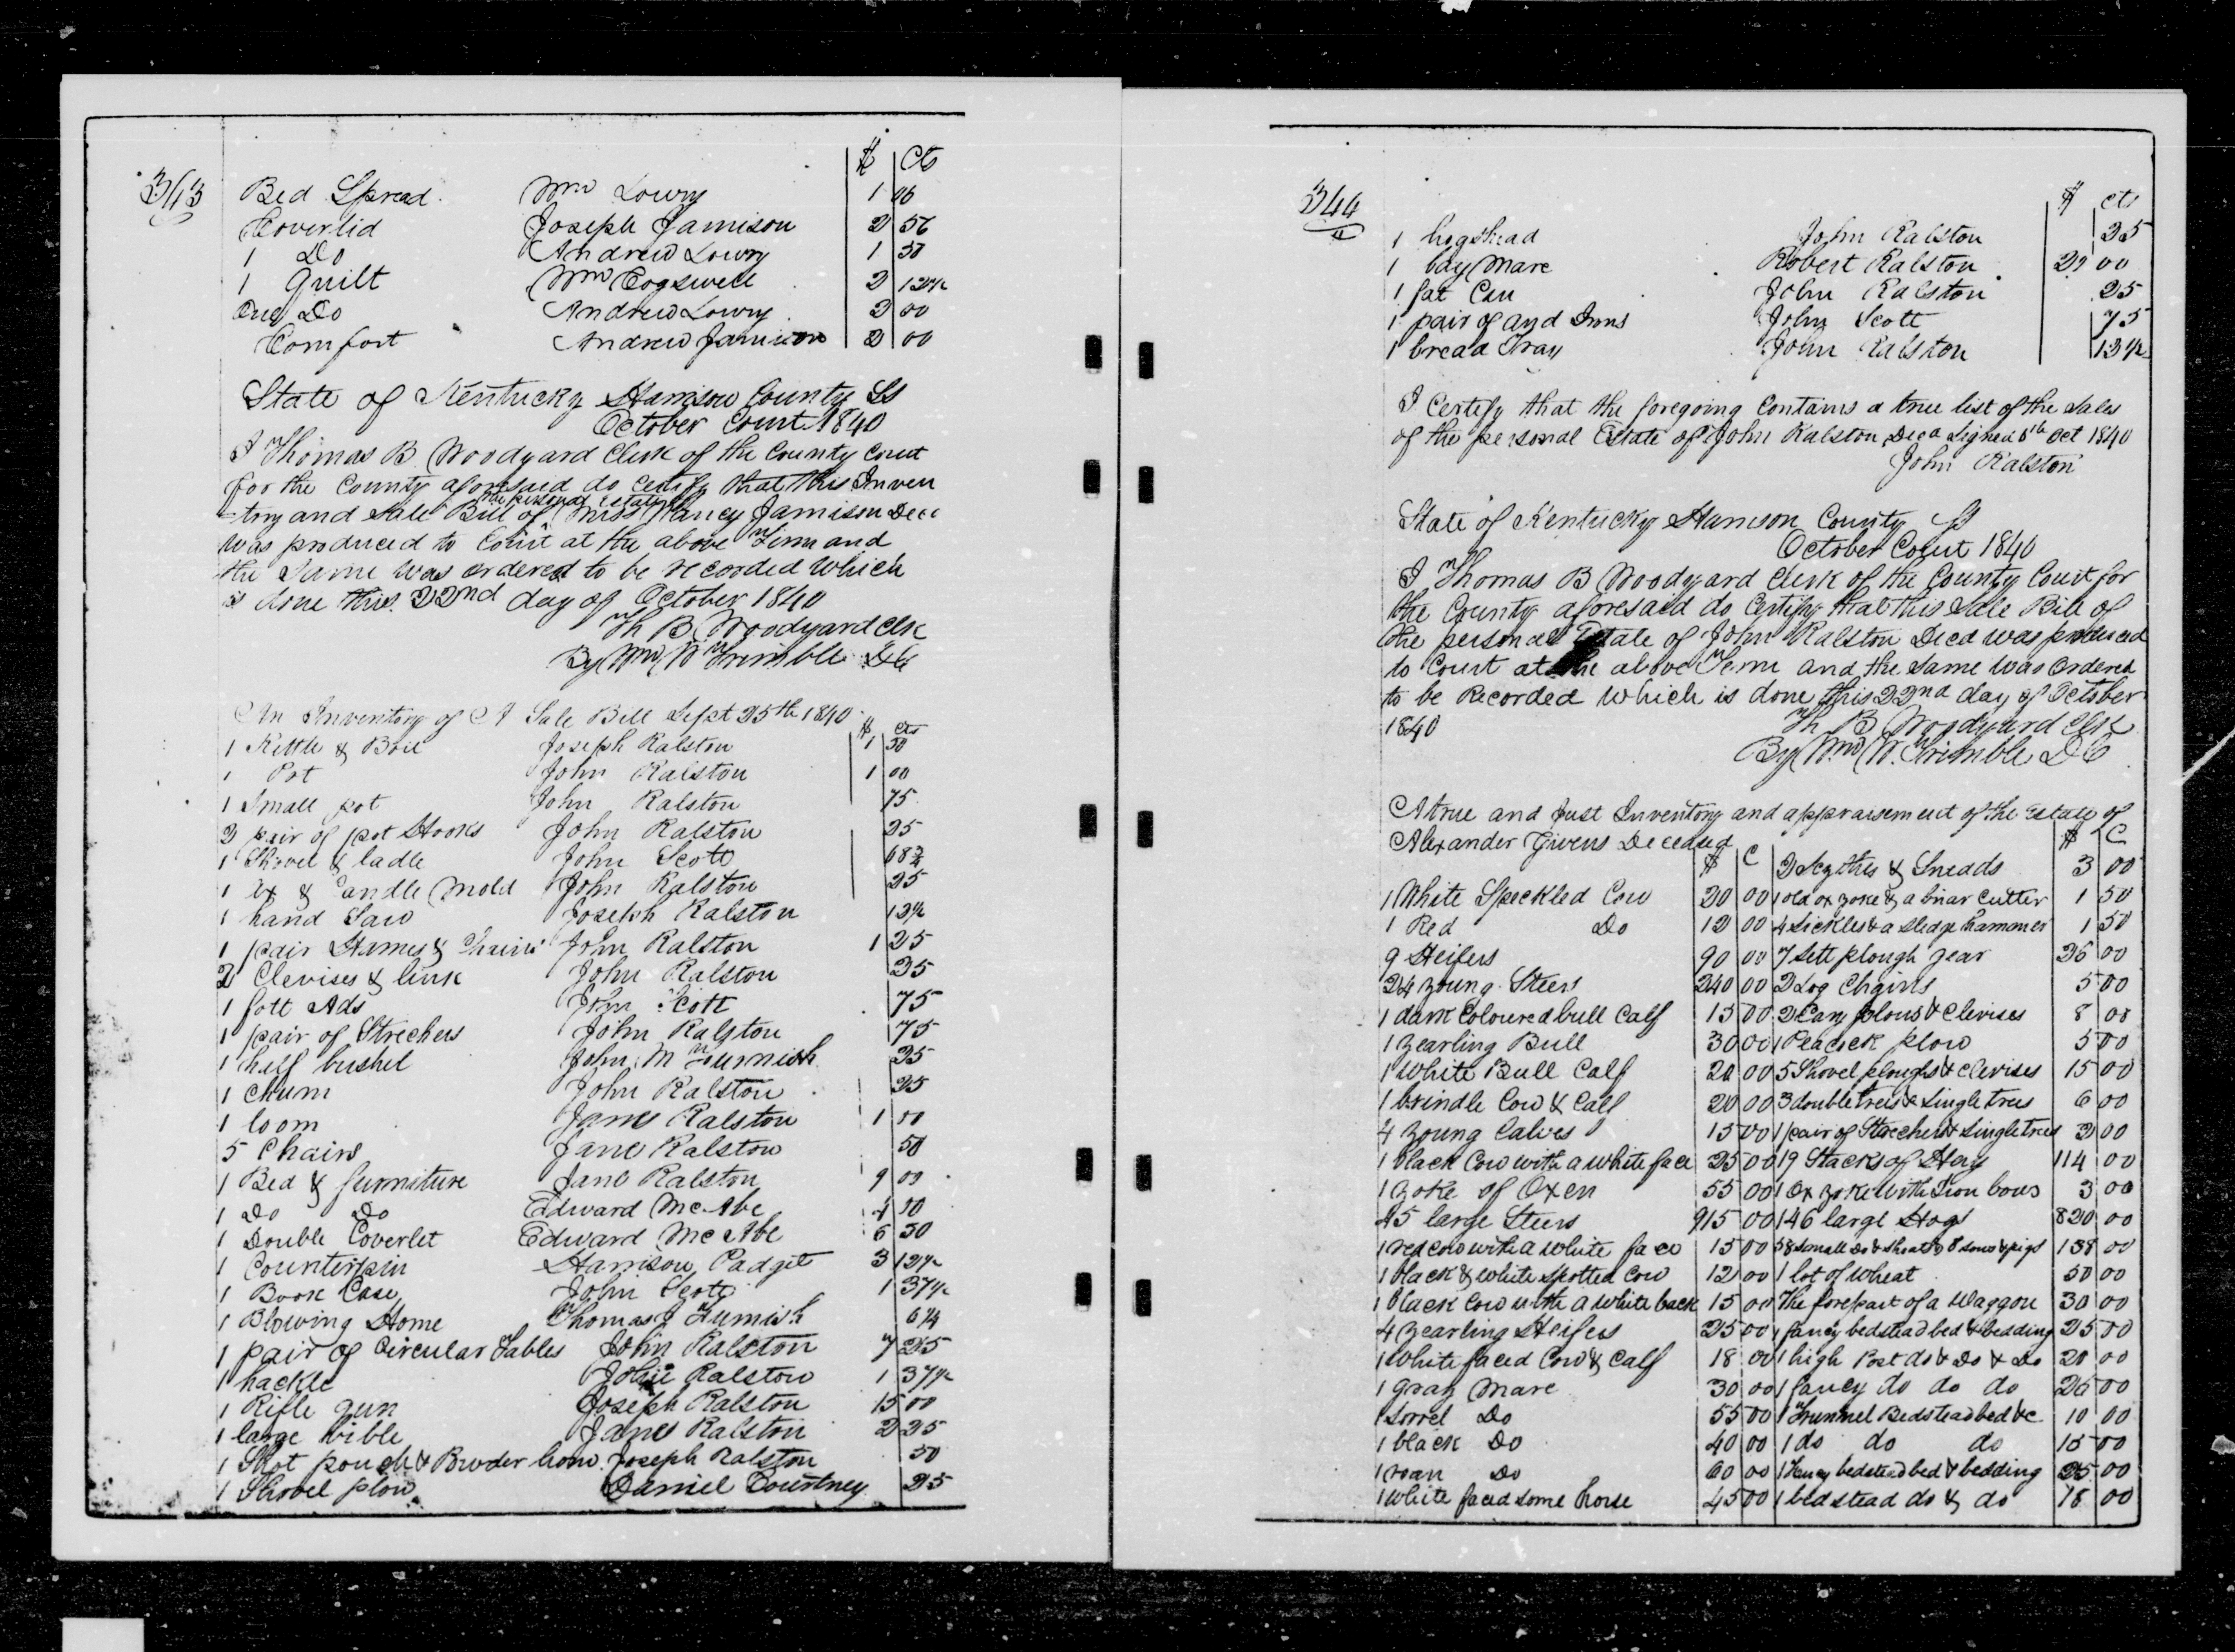 343
$ Cts
Bed Spread. Wm Lowry 1 06
Coverlid Joseph Jamison 2 56
1 Do Andrew Lowry 1 50
1 Quilt Wm Cogswell 2 12½
One Do Andrew Lowry. 2 00
Comfort Andrew Jamison 2 00
State of Kentucky Harrison County Ss
October Court 1840
I Thomas B. Woodyard Clerk of the County Court
for the County aforesaid do certify that this Inven
the personal Estate
-tory and Sale Bill of Miss Nancy Jamison Decd
was produced to Court at the above Term and
the Same was ordered to be recorded which
is done this 22nd day of October 1840
Th B. Woodyard Clk
By Wm W Trimble DC
An Inventory of A Sale Bill Sept 25th 1840
$ cts
1 Kettle & Boil Joseph Ralston 1 50
1 Pot John Ralston 1 00
1 Small pot John Ralston 75
2 pair of pot Hooks John Ralston 25
1 Shovel & ladle John Scott 68¾
1 ax & Candle Mold John Ralston 25
1 hand Saw Joseph Ralston 12½
1 pair Hames & Chains John Ralston 1 25
2 Clevises & link John Ralston 25
1 foot Ads John Scott 75
1 pair of Strechers John Ralston 75
1 half bushel John M Furnish 25
1 Churn John Ralston 25
1 loom James Ralston 1 00
5 Chairs Jane Ralston 50
1 Bed & furniture Jane Ralston 9 00
1 Do Do Edward McAbe 4 00
1 Double Coverlet Edward McAbe 6 50
1 Counterpin Harrison Padget 3 12½
1 Book Case John Scott 1 37½
1 Blowing Horne Thomas J Furnish 6¼
1 pair of Circular Tables John Ralston 7 25
1 hackle John Ralston 1 37½
1 Rifle gun Joseph Ralston 15 00
1 large bible James Ralston 2 25
1 Shot pouch & Powder horn Joseph Ralston 50
1 Shovel plow Daniel Courtney 25
344
$ cts
1 hogshead John Ralston 25
1 bay Mare Robert Ralston 00
1 fat Can John Ralston 25
1 pair of and Irons John Scott 75
1 bread Tray John Ralston 12½
I Certify that the foregoing Contains a true list of the Sales
of the personal Estate of John Ralston Decd Signed 5th Oct 1840
John Ralston
State of Kentucky Harrison County Ss
October Court 1840
I Thomas B Woodyard Clerk of the County Court for
the County aforesaid do Certify that this Sale Bill of
the personal Estate of John Ralston Decd was produced
to Court at the above Term and the Same was Ordered
to be Recorded which is done this 22nd day of October
1840 Th B Woodyard Clk
By Wm W. Trimble DC
A true and Just Inventory and appraisement of the Estate of
Alexander Givens Deceased
$ C $ C
2 Scythes & Sneads 3 00
1 White Speckled Cow 20 00 1 old ox yoke & a briar Cutter 1 50
1 Red Do 12 00 4 Sickles & a Sledge hammer 1 50
9 Heifers 90 00 7 Sett plough gear 26 00
24 young Steers 240 00 2 Log Chains 5 00
1 dark Coloured bull Calf 15 00 2 Cary plows & Clevises 8 00
1 yearling Bull 30 00 1 Peacock plow 5 00
1 White Bull Calf 20 00 5 Shovel ploughs & Clevises 15 00
1 brindle Cow & Calf 20 00 3 doubletrees & Singletrees 6 00
4 young Calves 15 00 1 pair of Strechers & Singletrees 2 00
1 black Cow with a white face 25 00 19 Stacks of Hay 114 00
1 yoke of Oxen 55 00 1 Ox yoke with Iron bows 3 00
45 large Steers 915 00 146 large Hogs 820 00
1 red cow with a white face 15 00 58 Small Do & Shoats & 8 Sows & pigs 138 00
1 black & white Spotted Cow 12 00 1 lot of wheat 50 00
1 black Cow with a white back 15 00 The forepart of a Waggon 30 00
4 yearling Heifers 25 00 1 fancy bedstead bed & bedding 25 00
1 White faced Cow & Calf 18 00 1 high Post do & Do & Do 20 00
1 gray Mare 30 00 1 fancy do do do 26 00
1 Sorrel Do 55 00 1 Trunnel Bedstead bed &c 10 00
1 black Do 40 00 1 do do do 15 00
1 roan Do 60 00 1 Fancy bedstead bed & bedding 25 00
1 white faced some horse 45 00 1 bedstead do & do 18 00